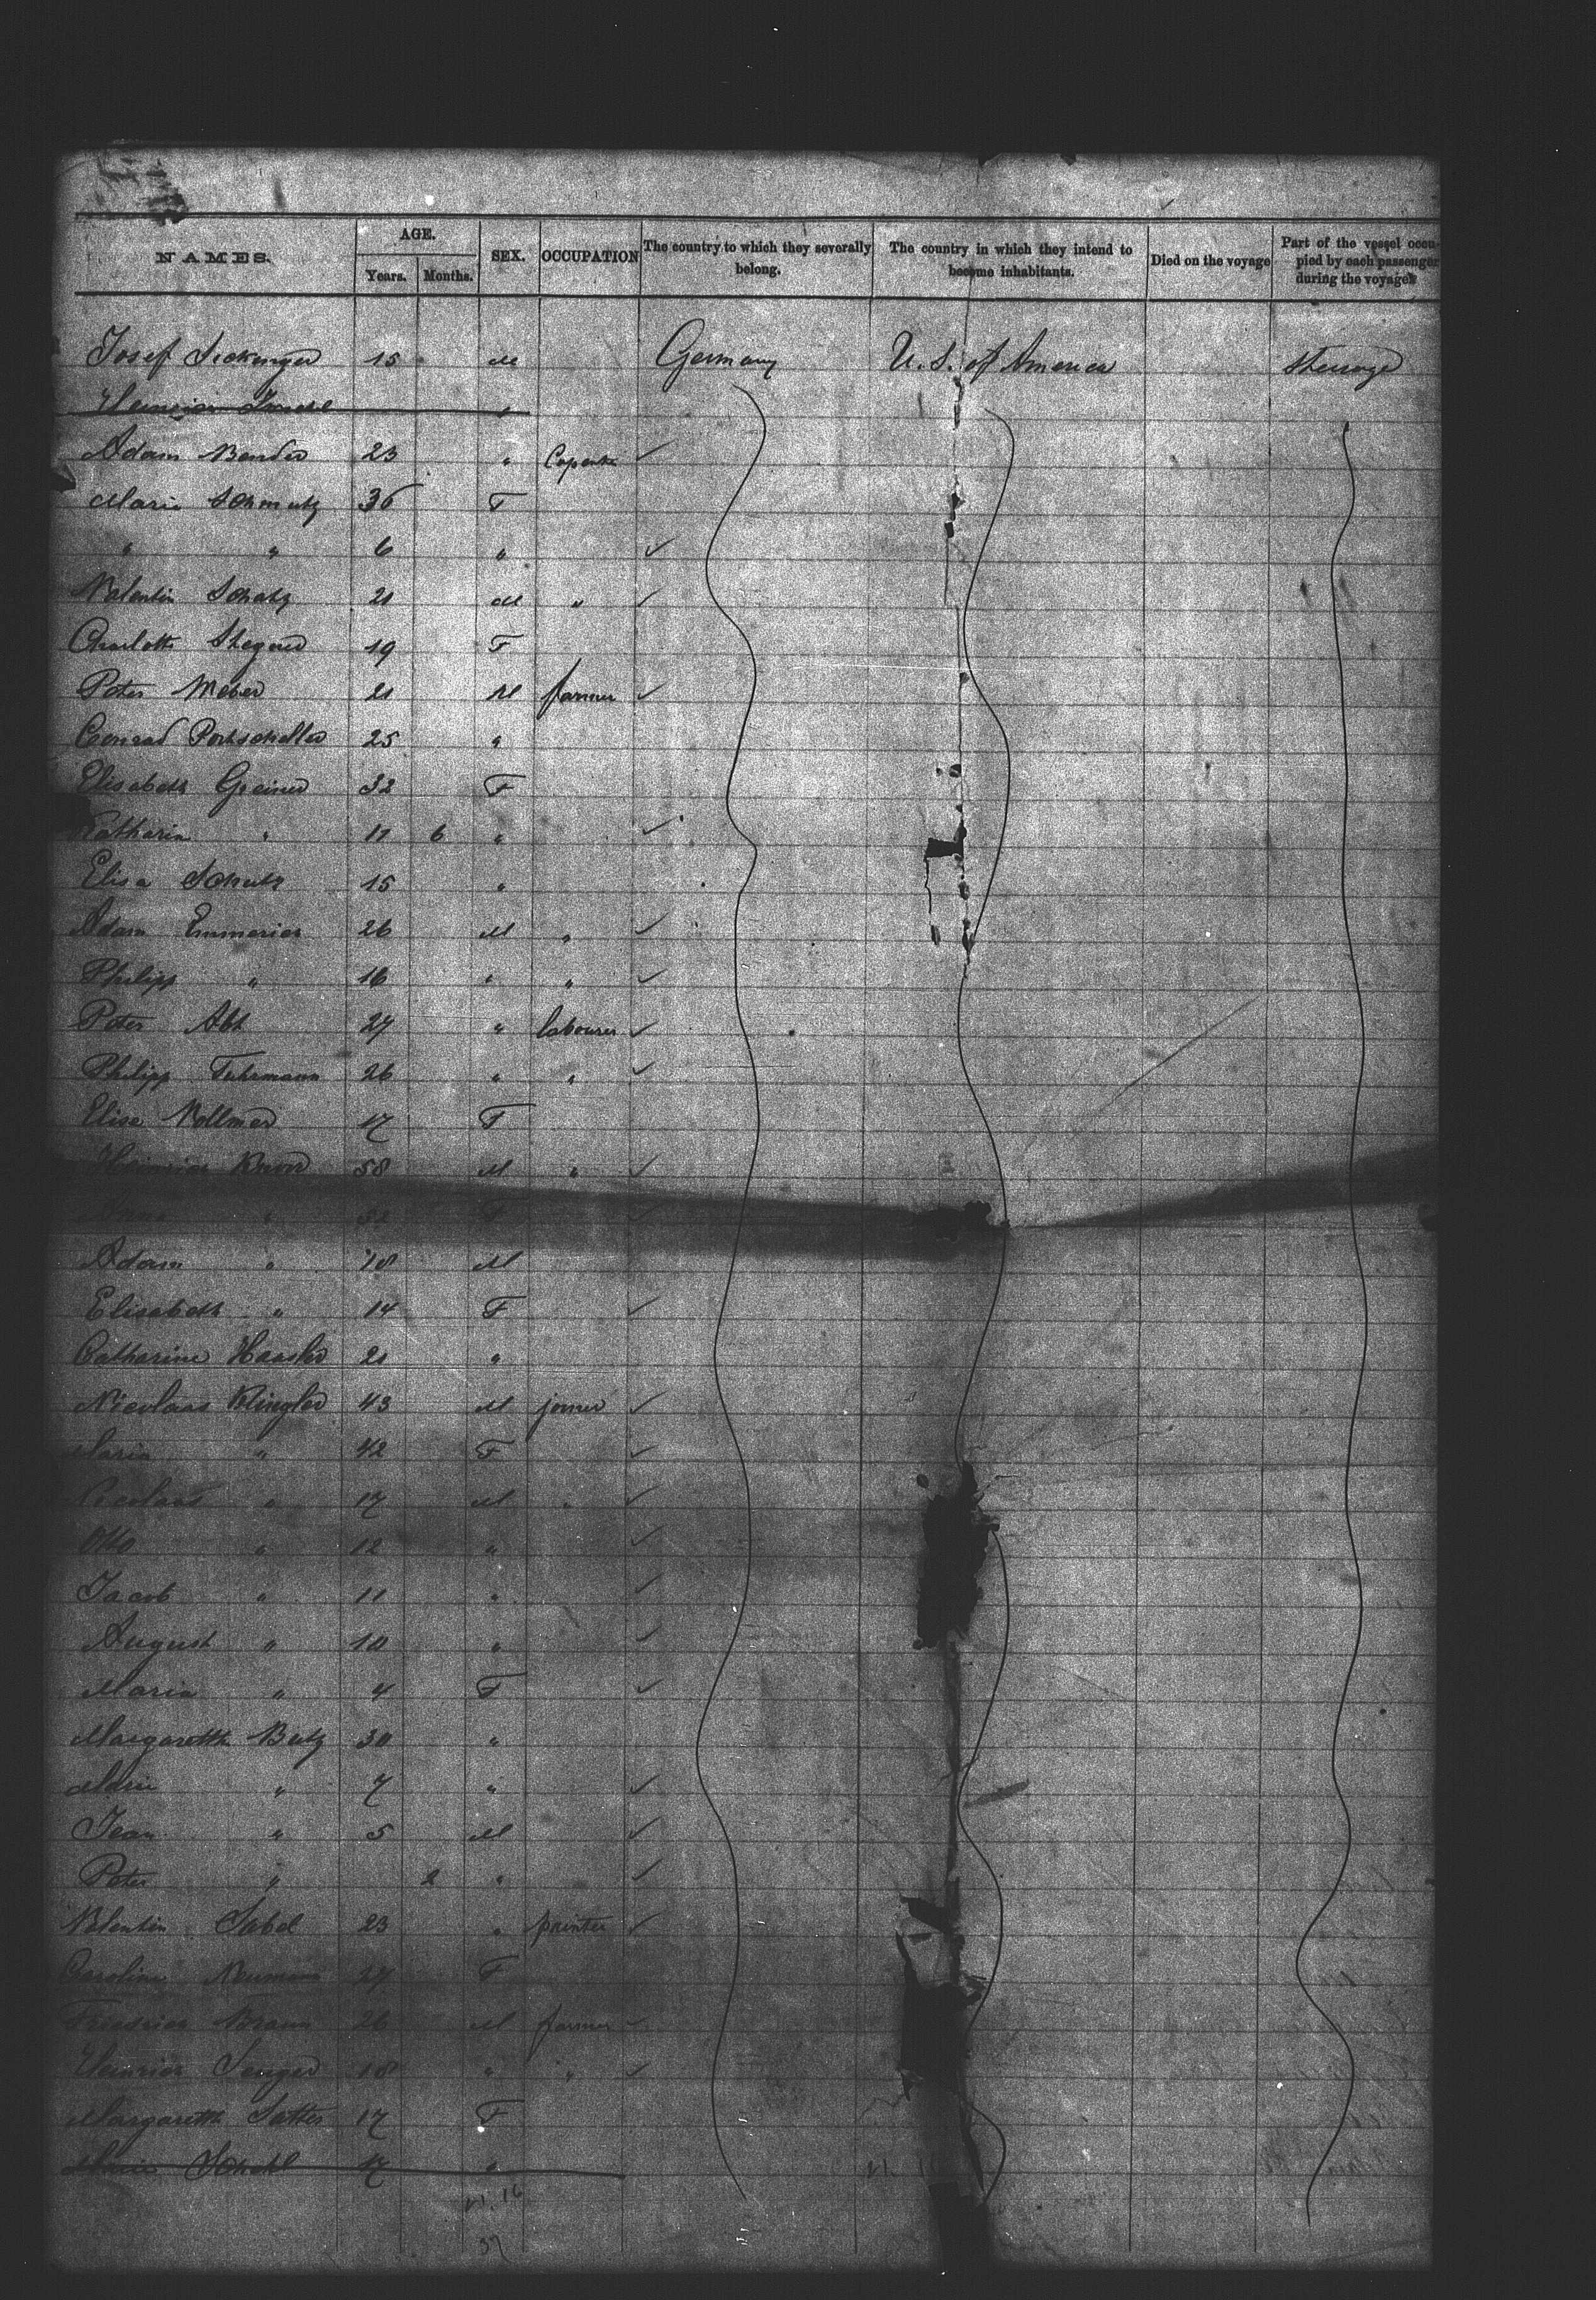 NAMES. AGE. Years. Months. SEX. OCCUPATION The country to which they severally belong. The country in which they intend to become inhabitants. Died on the voyage Part of the vessel occupied by each passenger during the voyage
Josef 15 M Germany U.S. of America Steerage
Adam Bender 23 "
Marie Schmutz 36 F
" " 6 "
Valentin Schatz 21 M "
Charlotte 19 F
Peter Weber 21 M farmer
Conrad Portscheller 25 "
Elisabeth Greiner 32 F
Catharin " 11 6 "
Elisa Schutz 15 "
Adam Emmerich 26 M "
Philipp " 16 " "
Peter Abt 27 " labourer
Philipp Fuhrmann 26 " "
Elise Vollmer 17 F
Heinrich Knorr 58 M "
Anna " F
Adam " 18 M
Elisabeth " 14 F
Catharine Haasler 21 "
Nicolaas Klingler 43 M joiner
Maria " 42 F
Nicolaas " 17 M "
Otto " 12 "
Jacob " 11 "
August " 10 "
Maria " 4 F
Margareth Butz 30 "
Marie " 7 "
Jean " 5 M
Peter " 2 "
Valentin Sabel 23 " printer
Caroline 27 F
Friedrich Braun 26 M farmer
Heinrich Senger 18 " "
Margareth 17 F
Marie 17 "
37